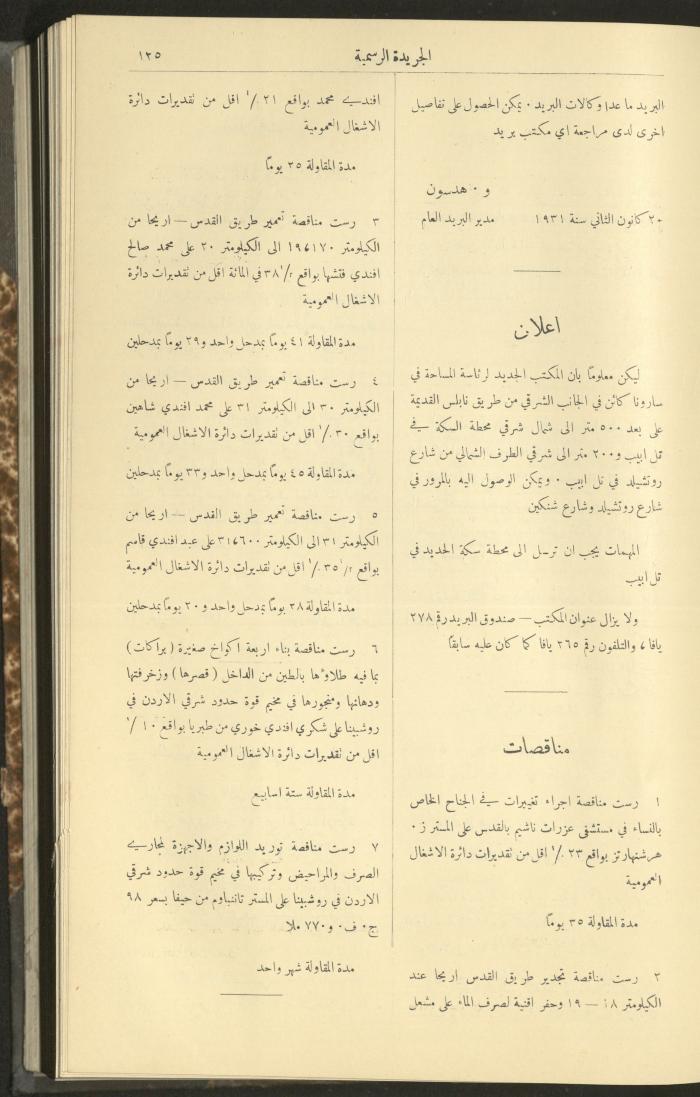 الجريدة الرسمية
١٢٥
البريد ما عدا وكالات البريد ٠ يمكن الحصول على تفاصيل
اخرى لدى مراجعة اي مكتب بريد
و ٠ هدسون
٢٠ كانون الثاني سنة ١٩٣١ مدير البريد العام
اعلان
ليكن معلومًا بان المكتب الجديد لرئاسة المساحة في
سارونا كائن في الجانب الشرقي من طريق نابلس القديمة
على بعد ٥٠٠ متر الى شمال شرقي محطة السكة في
تل ابيب و٢٠٠ متر الى شرقي الطرف الشمالي من شارع
روتشيلد في تل ابيب ٠ ويمكن الوصول اليه بالمرور في
شارع روتشيلد وشارع شنكين
المهمات يجب ان ترسل الى محطة سكة الحديد في
تل ابيب
ولا يزال عنوان المكتب — صندوق البريد رقم ٢٧٨
يافا ، والتلفون رقم ٢٦٥ يافا كما كان عليه سابقًا
مناقصات
١ رست مناقصة اجراء تغييرات في الجناح الخاص
بالنساء في مستشفى عزرات ناشيم بالقدس على المستر ز ٠
هرشنهارتز بواقع ٢٣ ٪ اقل من تقديرات دائرة الاشغال
العمومية
مدة المقاولة ٣٥ يومًا
٢ رست مناقصة تجدير طريق القدس اريحا عند
الكيلومتر ١٨ — ١٩ وحفر اقنية لصرف الماء على مشعل
افندي محمد بواقع ٢١ ٪ اقل من تقديرات دائرة
الاشغال العمومية
مدة المقاولة ٢٥ يومًا
٣ رست مناقصة تعمير طريق القدس — اريحا من
الكيلومتر ١٩٬١٧٠ الى الكيلومتر ٢٠ على محمد صالح
افندي فتشها بواقع ٣٨١/٢ في المائة اقل من تقديرات دائرة
الاشغال العمومية
مدة المقاولة ٤١ يومًا بمدحل واحد و٢٩ يومًا بمدحلين
٤ رست مناقصة تعمير طريق القدس — اريحا من
الكيلومتر ٣٠ الى الكيلومتر ٣١ على محمد افندي شاهين
بواقع ٣٠ ٪ اقل من تقديرات دائرة الاشغال العمومية
مدة المقاولة ٤٥ يومًا بمدحل واحد و٣٣ يومًا بمدحلين
٥ رست مناقصة تعمير طريق القدس — اريحا من
الكيلومتر ٣١ الى الكيلومتر ٣١٬٦٠٠ على عبد افندي قاسم
بواقع ٣٥١/٢ ٪ اقل من تقديرات دائرة الاشغال العمومية
مدة المقاولة ٢٨ يومًا بمدحل واحد و٢٠ يومًا بمدحلين
٦ رست مناقصة بناء اربعة اكواخ صغيرة ( براكات )
بما فيه طلاؤها بالطين من الداخل ( قصرها ) وزخرفتها
ودهانها ومنجورها في مخيم قوة حدود شرقي الاردن في
روشبينا على شكري افندي خوري من طبريا بواقع ١٠ ٪
اقل من تقديرات دائرة الاشغال العمومية
مدة المقاولة ستة اسابيع
٧ رست مناقصة توريد اللوازم والاجهزة لمجاري
الصرف والمراحيض وتركيبها في مخيم قوة حدود شرقي
الاردن في روشبينا على المستر تاننباوم من حيفا بسعر ٩٨
ج ٠ ف ٠ و ٧٧٠ ملا
مدة المقاولة شهر واحد